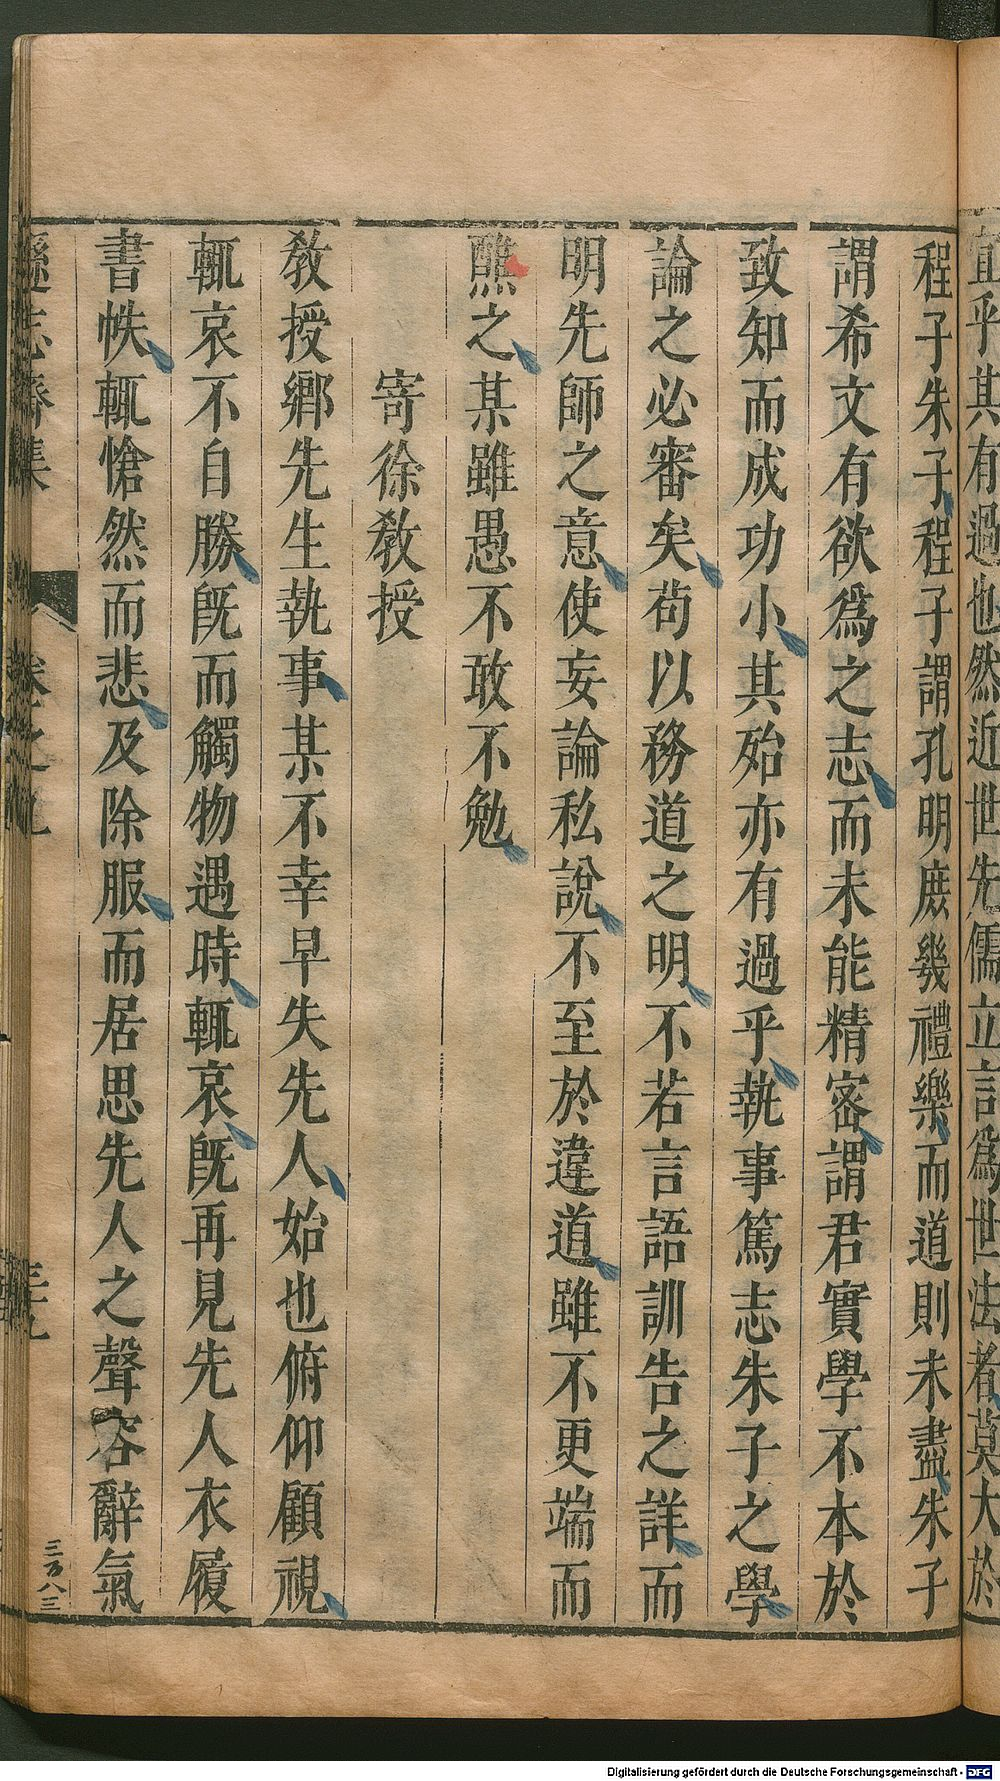 宜乎其有過也然近世先儒立言為世法者莫大於
程子朱子程子謂孔明庶幾禮樂而道則未盡朱子
謂希文有欲爲之志而未能精密謂君實學不本於
致知而成功小其殆亦有過乎執事篤志朱子之學
論之必審矣苟以務道之明不若言語訓告之詳而
明先師之意使妄論私說不至於違道雖不更端而
醮之某雖愚不敢不勉
寄徐敎授
敎授鄉先生執事某不幸早失先人始也俯仰顧視
輒哀不自勝旣而觸物遇時輒哀旣再見先人衣履
書帙輒愴然而悲及除服而居思先人之聲容辭氣
遜志齋集
卷之九
三十九
三百八三
Digitalisierung gefördert durch die Deutsche Forschungsgemeinschaft - DFG